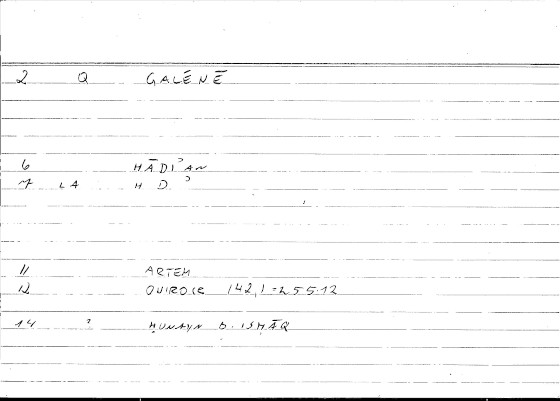 2 Q GALĒNĒ
6 HĀDIʾAN
7 LA H D ʾ
11 ARTEM
12 142,1 = 255.12
14 ? ḤUNAYN B. ISḤĀQ